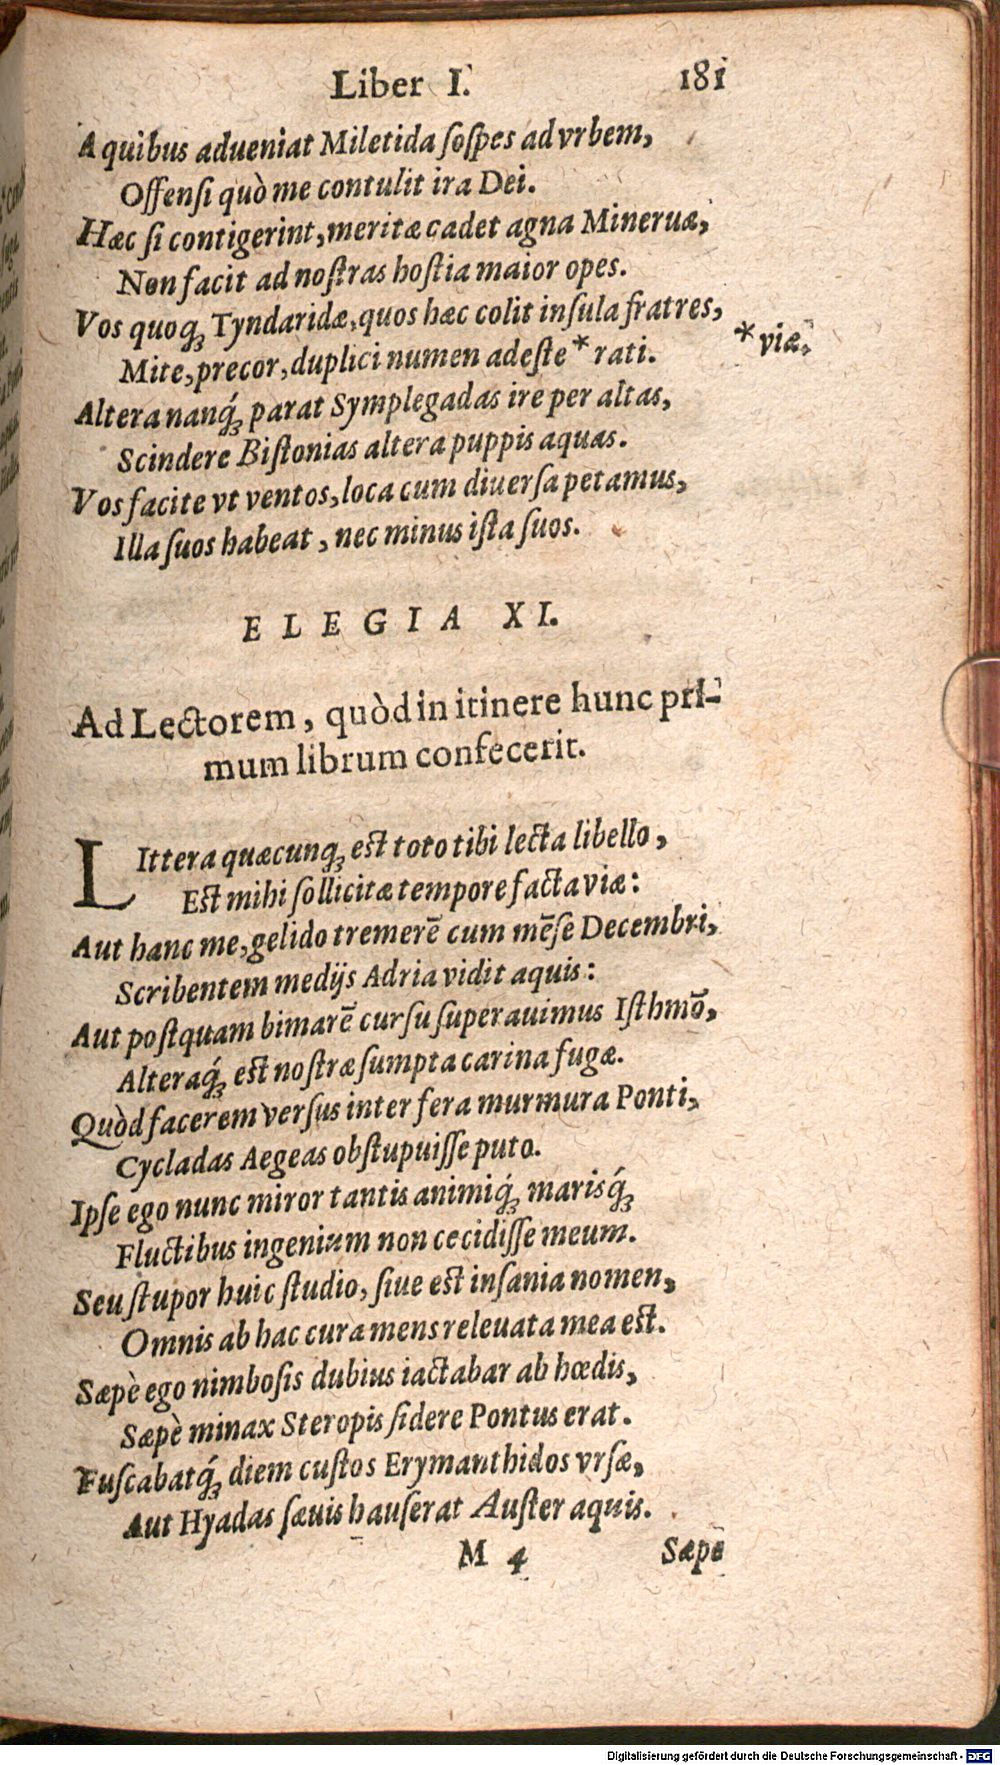 Liber I. 181
A quibus adueniat Miletida ſoſpes ad vrbem,
Offenſi quò me contulit ira Dei.
Hæc ſi contigerint, meritæ cadet agna Mineruæ,
Non facit ad noſtras hoſtia maior opes.
Vos quoq; Tyndaridæ, quos hæc colit inſula fratres,
Mite, precor, duplici numen adeſte * rati.
* viæ,
Altera nanq́; parat Symplegadas ire per altas,
Scindere Biſtonias altera puppis aquas.
Vos facite vt ventos, loca cum diuerſa petamus,
Illa ſuos habeat, nec minus iſta ſuos.
ELEGIA XI.
Ad Lectorem, quòd in itinere hunc pri-
mum librum confecerit.
LIttera quæcunq; eſt toto tibi lecta libello,
Eſt mihi ſollicitæ tempore facta viæ:
Aut hanc me, gelido tremerē cum mēſe Decembri,
Scribentem medijs Adria vidit aquis:
Aut poſtquam bimarē curſu ſuperauimus Iſthmō,
Alteraq́; eſt noſtræ ſumpta carina fugæ.
Quòd facerem verſus inter fera murmura Ponti,
Cycladas Aegeas obſtupuiſſe puto.
Ipſe ego nunc miror tantis animiq́; marisq́;
Fluctibus ingenium non cecidiſſe meum.
Seu ſtupor huic ſtudio, ſiue eſt inſania nomen,
Omnis ab hac cura mens releuata mea eſt.
Sæpè ego nimboſis dubius iactabar ab hœdis,
Sæpè minax Steropis ſidere Pontus erat.
Fuſcabatq́; diem cuſtos Erymanthidos vrſæ,
Aut Hyadas ſæuis hauſerat Auſter aquis.
M 4 Sæpè
Digitalisierung gefördert durch die Deutsche Forschungsgemeinschaft - DFG